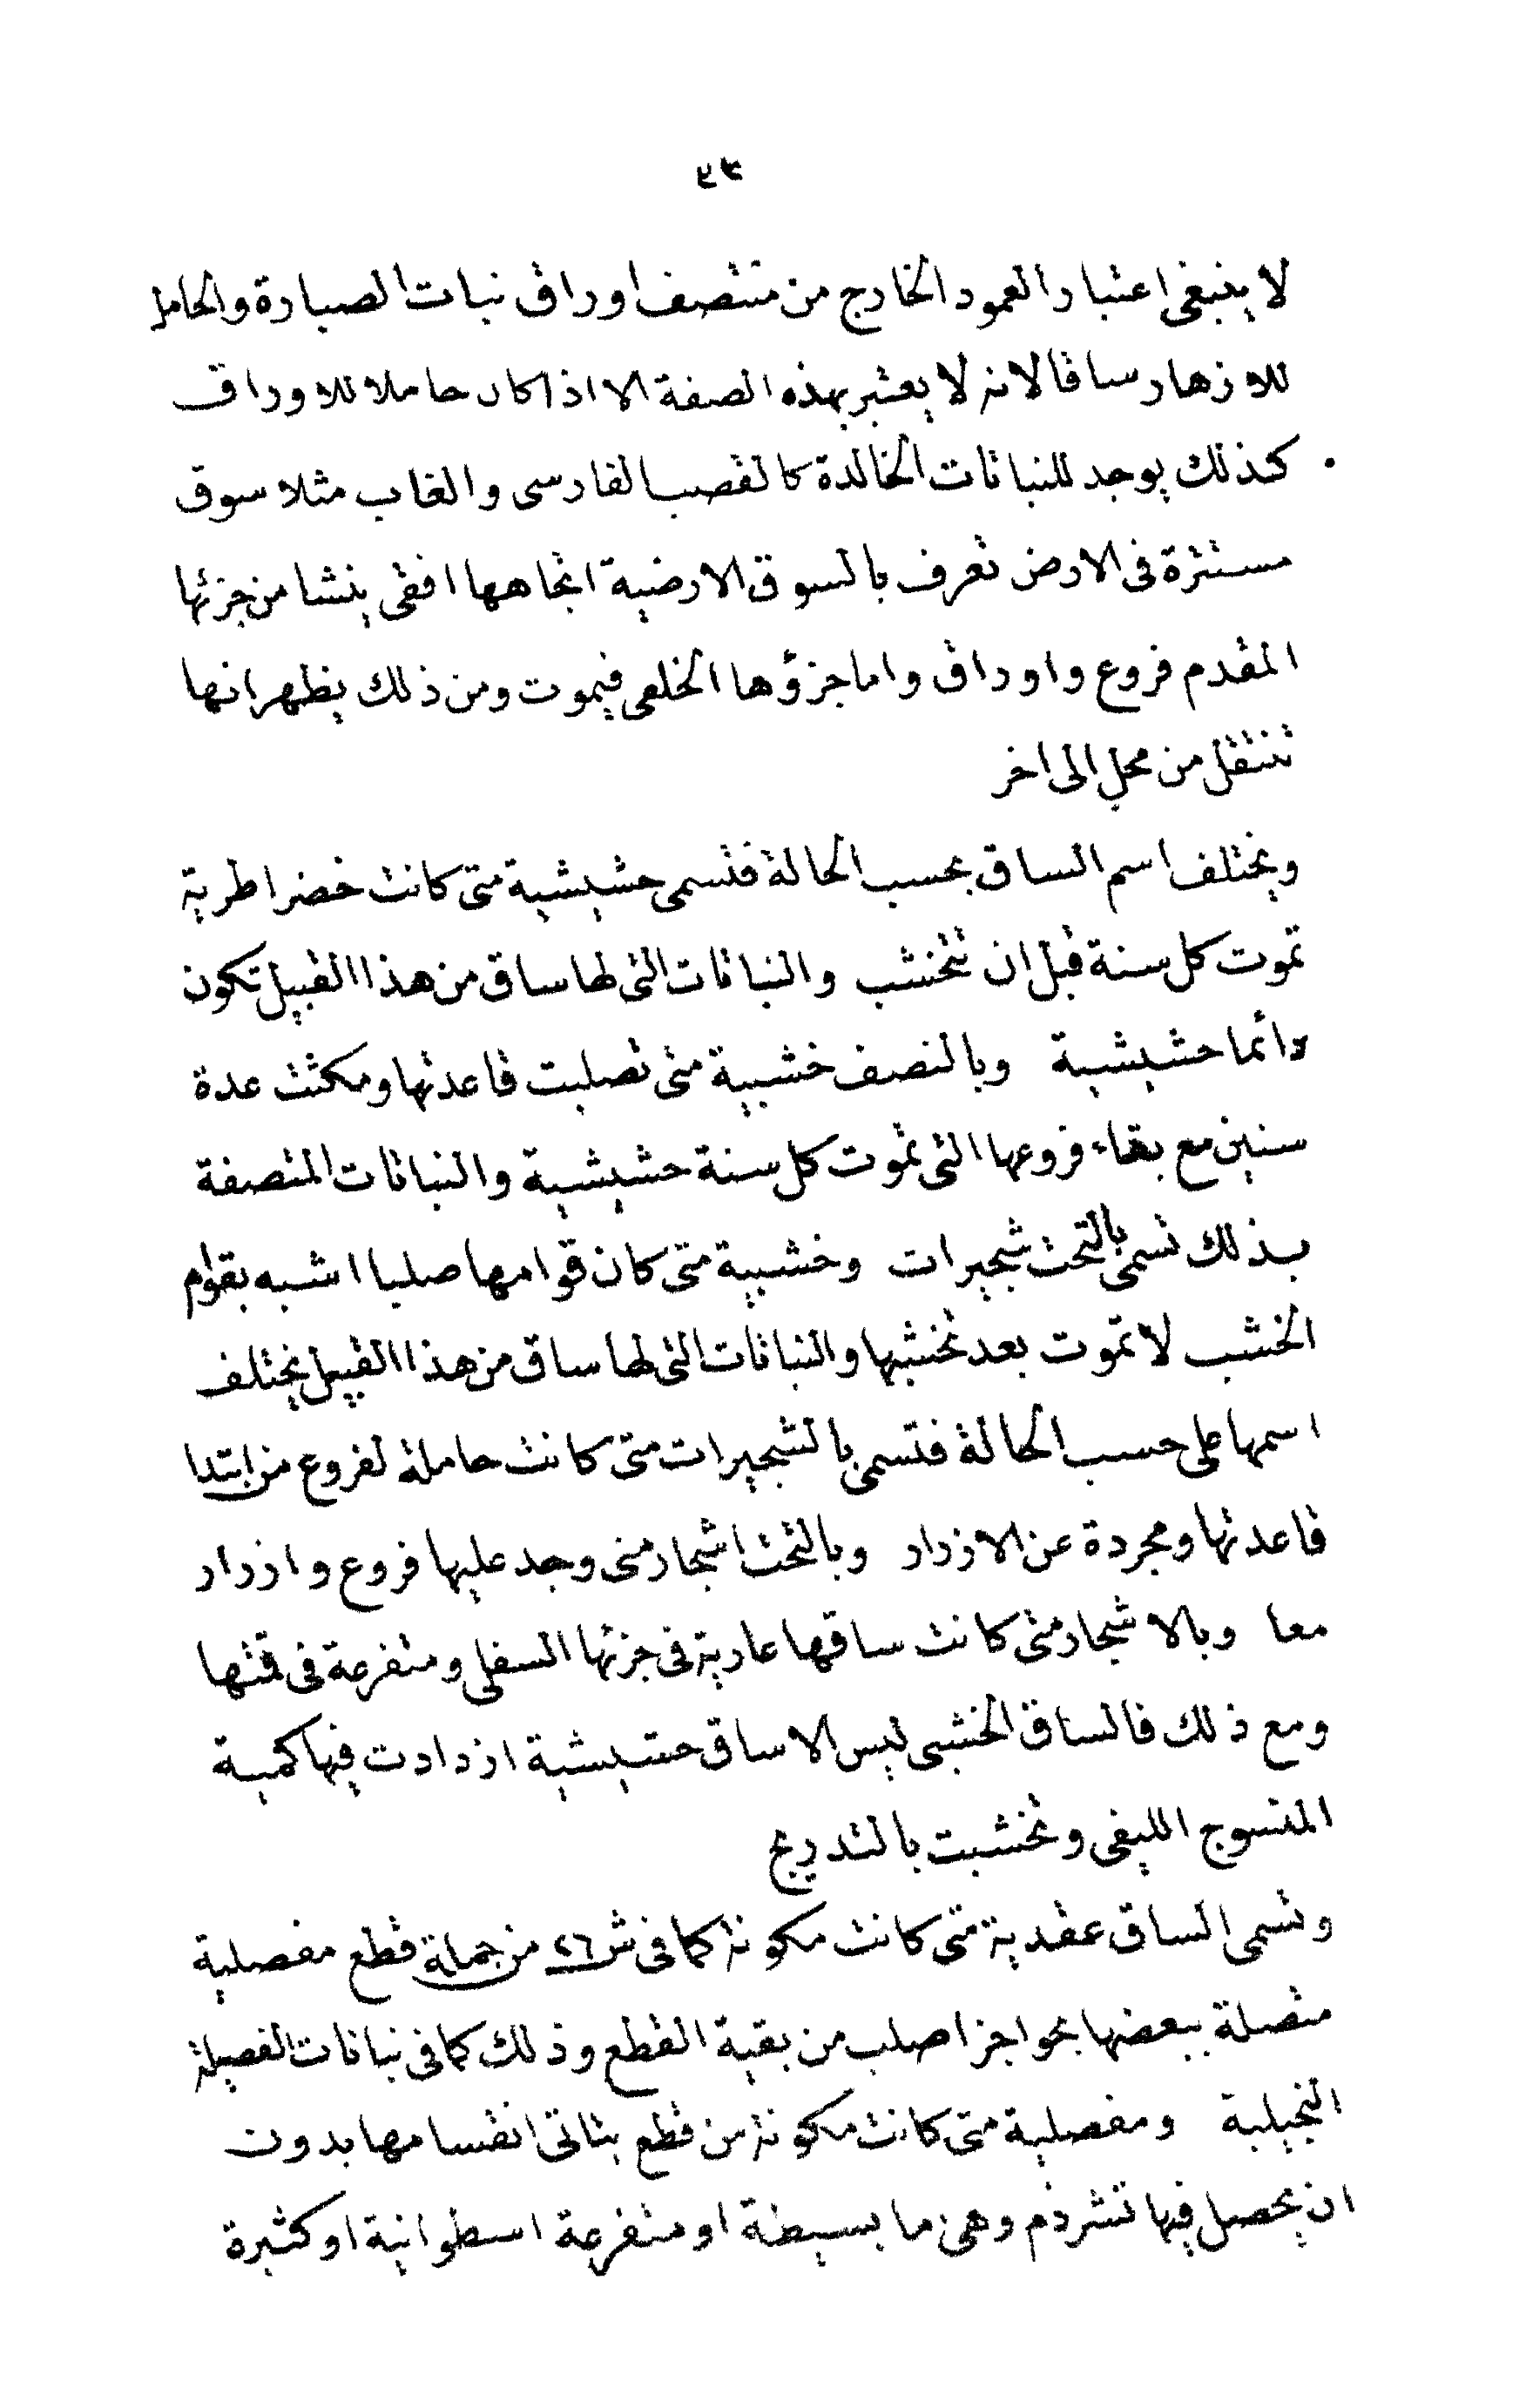 لا ينبغى اعتبار العمود الخارج من منتصف اوراق نبات الصبارة والحامل
للازهار ساقا لانه لا يعتبر بهذه الصفة الا اذا كان حاملا للاوراق
كذلك يوجد للنباتات الخالدة كالقصب الفارسى والغاب مثلا سوق
مستترة فى الارض تعرف بالسوق الارضية اتجاهها افقى ينشا من جزئها
المقدم فروع واوراق واما جزؤها الخلفى فيموت ومن ذلك يظهر انها
تنتقل من محل الى اخر
ويختلف اسم الساق بحسب الحالة فتسمى حشيشية متى كانت خضرا طرية
تموت كل سنة قبل ان تتخشب والنباتات التى لها ساق من هذا القبيل تكون
دائما حشيشية وبالنصف خشبية متى تصلبت قاعدتها ومكثت عدة
سنين مع بقاء فروعها التى تموت كل سنة حشيشية والنباتات المتصفة
بذلك تسمى بالتحت شجيرات وخشبية متى كان قوامها صلبا اشبه بقوام
الخشب لا تموت بعد تخشبها والنباتات التى لها ساق من هذا القبيل يختلف
اسمها على حسب الحالة فتسمى بالشجيرات متى كانت حاملة لفروع من ابتدا
قاعدتها ومجردة عن الازرار وبالتحت اشجار متى وجد عليها فروع وازرار
معا وبالاشجار متى كانت ساقها عارية فى جزئها السفلى ومتفرعة فى قمتها
ومع ذلك فالساق الخشبى ليس الا ساق حشيشية ازدادت فيها كمية
المنسوج الليفى وتخشبت بالتدريج
وتسمى الساق عقدية متى كانت مكونة كما فى ش ٢٦ من جملة قطع مفصلية
متصلة ببعضها بحواجز اصلب من بقية القطع وذلك كما فى نباتات الفصيلة
النجيلية ومفصلية متى كانت مكونة من قطع يتاتى انقسامها بدون
ان يحصل فيها تشرذم وهى اما بسيطة او متفرعة اسطوانية او كثيرة